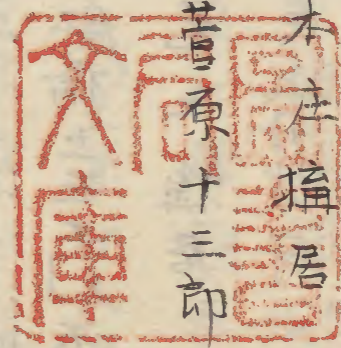 本庄搆居
菅原十三郎
文庫